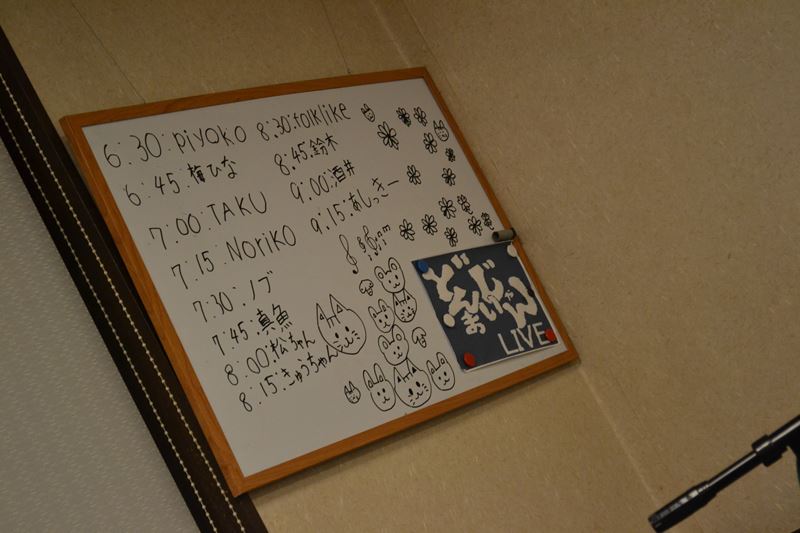 6:30:piyoko
6:45:梅ひな
7:00:TAKU
7:15:NoriKo
7:30:ノブ
7:45:真魚
8:00:松ちゃん
8:15:きゅうちゃん
8:30:folklike
8:45:鈴木
9:00:酒井
9:15:あしっきー
LIVE